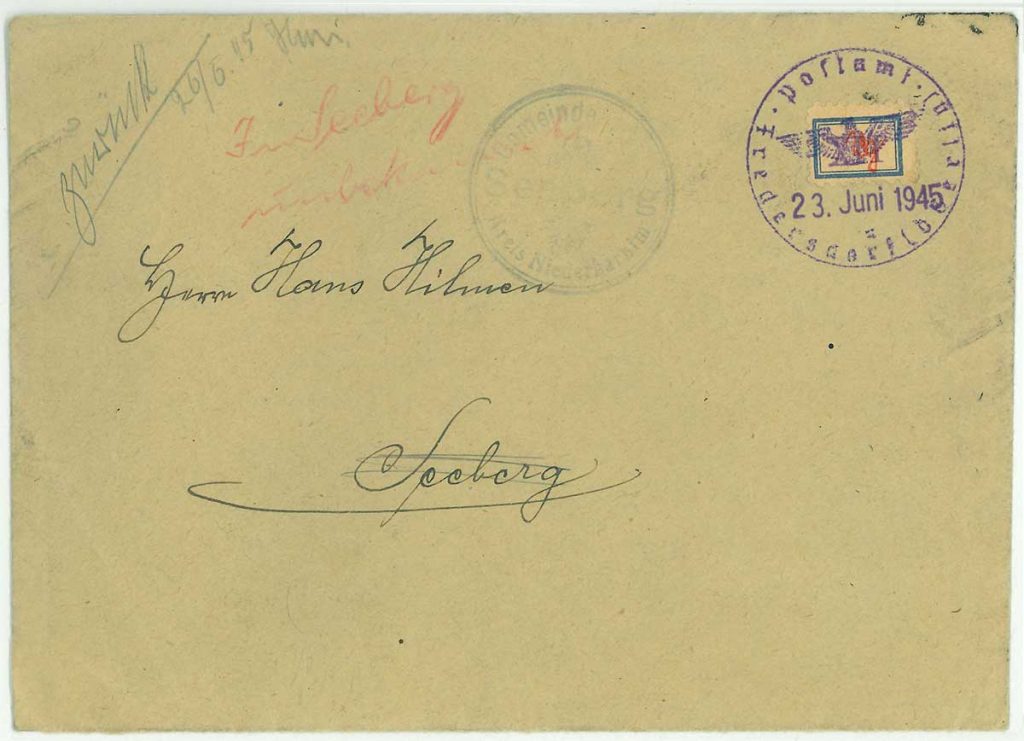 Zurück
26/6. 45
In Seeberg
unbek.
Gemeinde
Kreis Niederbarnim
Postamt
Fredersdorf
23. Juni 1945
Herrn Hans Hilmen
Seeberg